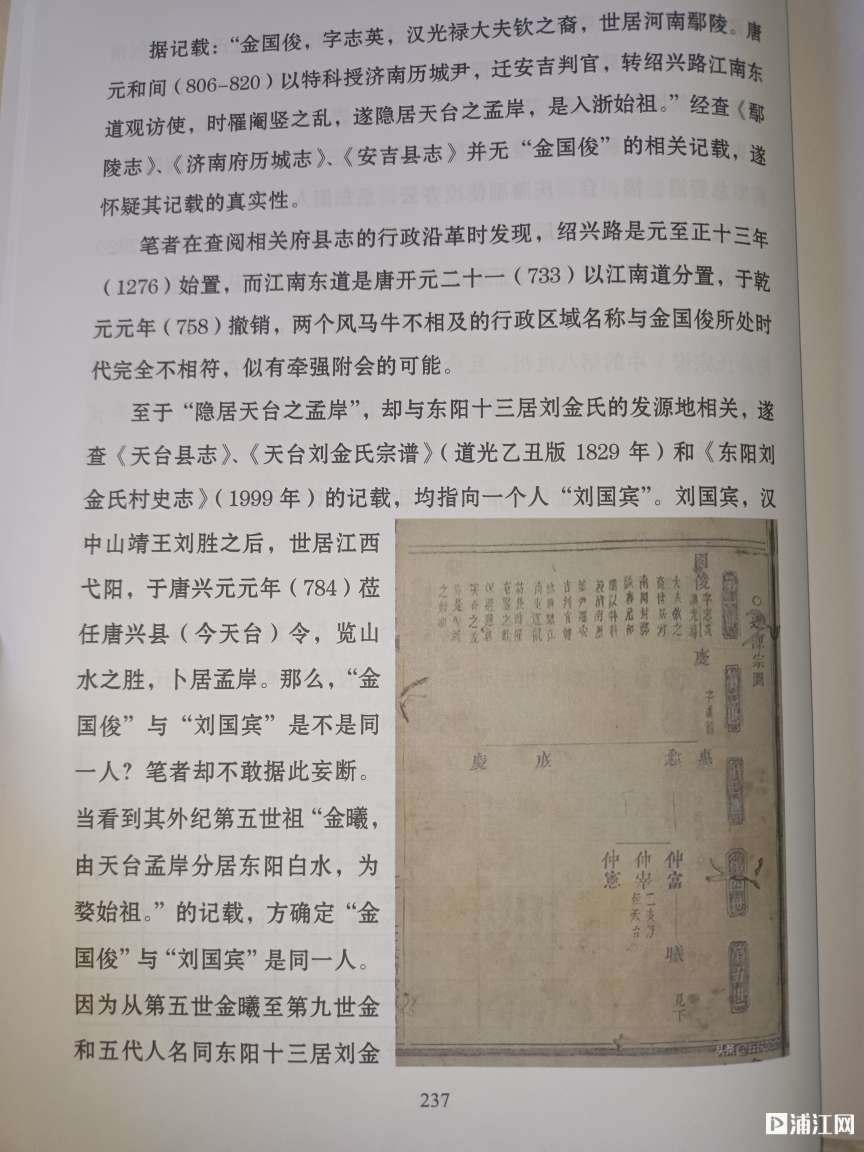 据记载：“金国俊，字志英，汉光禄大夫钦之裔，世居河南鄢陵。唐
元和间（806-820）以特科授济南历城尹，迁安吉判官，转绍兴路江南东
道观访使，时罹阉竖之乱，遂隐居天台之孟岸，是入浙始祖。”经查《鄢
陵志》、《济南府历城志》、《安吉县志》并无“金国俊”的相关记载，遂
怀疑其记载的真实性。
笔者在查阅相关府县志的行政沿革时发现，绍兴路是元至正十三年
（1276）始置，而江南东道是唐开元二十一（733）以江南道分置，于乾
元元年（758）撤销，两个风马牛不相及的行政区域名称与金国俊所处时
代完全不相符，似有牵强附会的可能。
至于“隐居天台之孟岸”，却与东阳十三居刘金氏的发源地相关，遂
查《天台县志》、《天台刘金氏宗谱》（道光乙丑版 1829 年）和《东阳刘
金氏村史志》（1999 年）的记载，均指向一个人“刘国宾”。刘国宾，汉
中山靖王刘胜之后，世居江西
弋阳，于唐兴元元年（784）莅
任唐兴县（今天台）令，览山
水之胜，卜居孟岸。那么，“金
国俊”与“刘国宾”是不是同
一人？笔者却不敢据此妄断。
当看到其外纪第五世祖“金曦，
由天台孟岸分居东阳白水，为
婺始祖。”的记载，方确定“金
国俊”与“刘国宾”是同一人。
因为从第五世金曦至第九世金
和五代人名同东阳十三居刘金
國俊
慶
仲富
仲
仲憲
曦
見下
237
浦江网